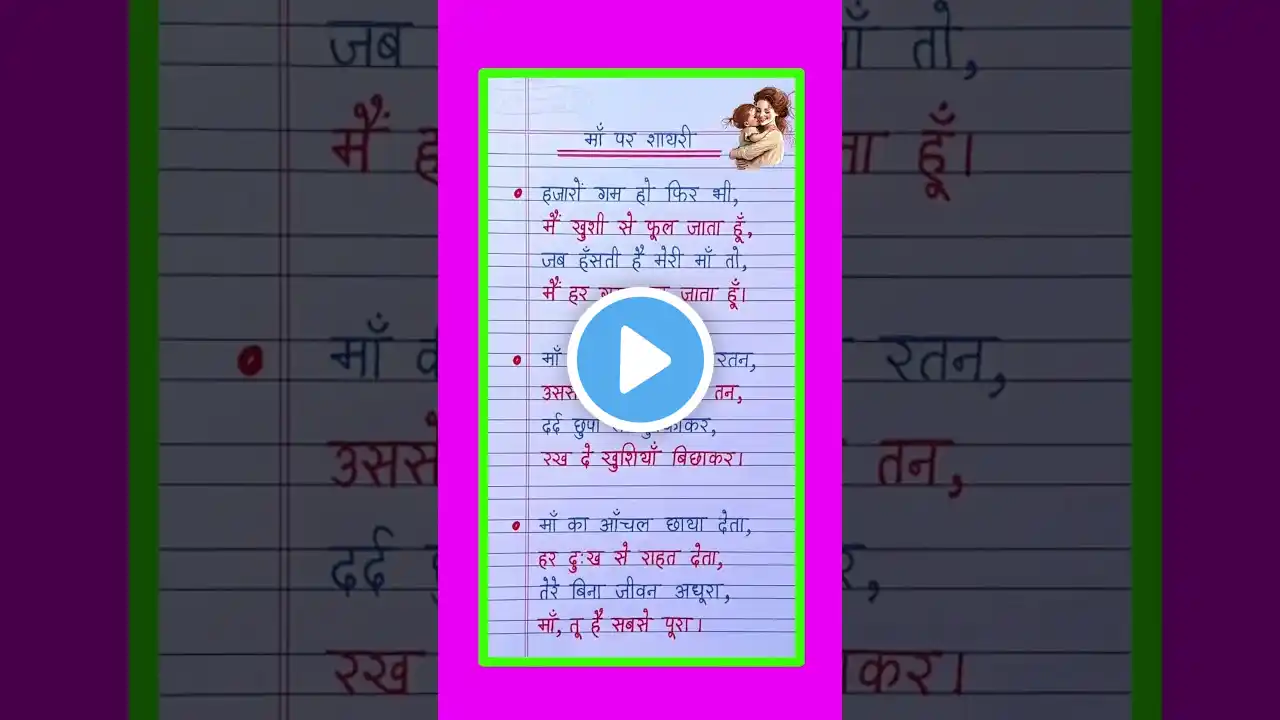 माँ पर शायरी
हजारों गम हो फिर भी,
मैं खुशी से फूल जाता हूँ,
जब हँसती है मेरी माँ तो,
मैं हर जाता हूँ।
माँ रतन,
तन,
दर्द छुपा
रख दे खुशियाँ बिछाकर।
माँ का आँचल छाया देता,
हर दुःख से राहत देता,
तेरे बिना जीवन अधूरा,
माँ, तू है सबसे पूरा।